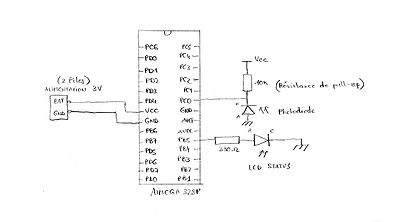 (2 Piles)
ALIMENTATION 3V
BAT
GND
PC6
PD0
PD1
PD2
PD3
PD4
VCC
GND
PB6
PB7
PD5
PD6
PD7
PB0
PC5
PC4
PC3
PC2
PC1
PC0
GND
AREF
AVCC
PB5
PB4
PB3
PB2
PB1
ATMEGA 328P
Vcc
10K
(Résistance de pull-up)
Photodiode
330Ω
A
C
LED STATUS